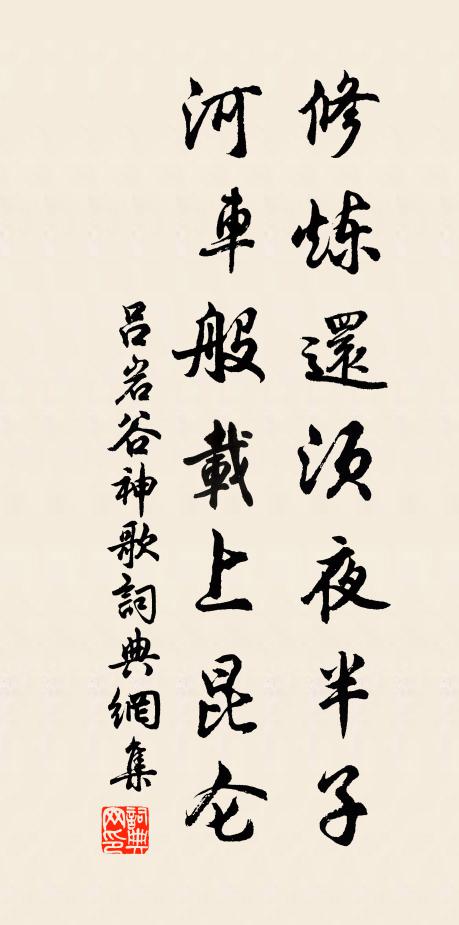 修炼還須夜半子
河車般載上昆仑
吕岩谷神歌詞典網集
詞典网印